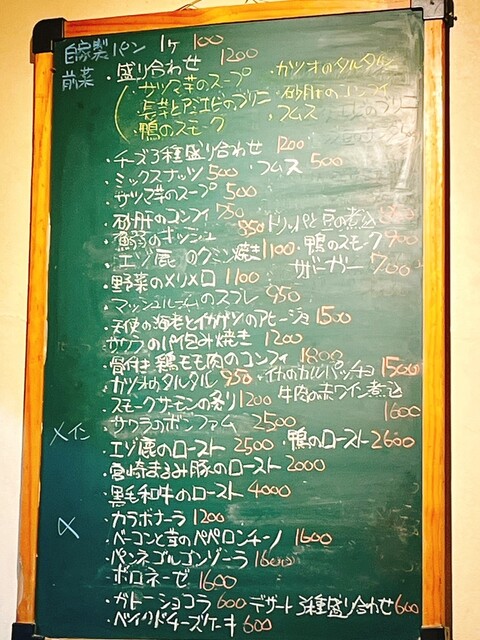 自家製パン 1ヶ 100
前菜 ・盛り合わせ 1200
・サツマ芋のスープ ・カツオのタルタル
・長芋とアミエビのブリニ ・砂肝のコンフィ
・鴨のスモーク ・フムス
・チーズ3種盛り合わせ 1200
・ミックスナッツ 500 フムス 500
・サツマ芋のスープ 500
・砂肝のコンフィ 750 トリッパと豆の煮込
のキッシュ 850 ・鴨のスモーク 900
・エゾ鹿のクミン焼き 1100 700
・野菜のメリメロ 1100
・マッシュルームのスフレ 950
・天使の海老とイカゲソのアヒージョ 1500
サワラのパイ包み焼き 1200
骨付き鶏モモ肉のコンフィ 1800
・カツオのタルタル 950 ・イカのカルパッチョ 1500
・スモークサーモンの炙り 1200 牛肉の赤ワイン煮込 1600
メイン ・サワラのボンファム 2500
・エゾ鹿のロースト 2500 ・鴨のロースト 2600
・宮崎まるみ豚のロースト 2000
・黒毛和牛のロースト 4000
〆 ・カラボナーラ 1200
・ベーコンと茸のペペロンチーノ 1600
・ペンネゴルゴンゾーラ 1600
・ボロネーゼ 1600
・ガトーショコラ 600 デザート3種盛り合わせ 600
・ベイクドチーズケーキ 600